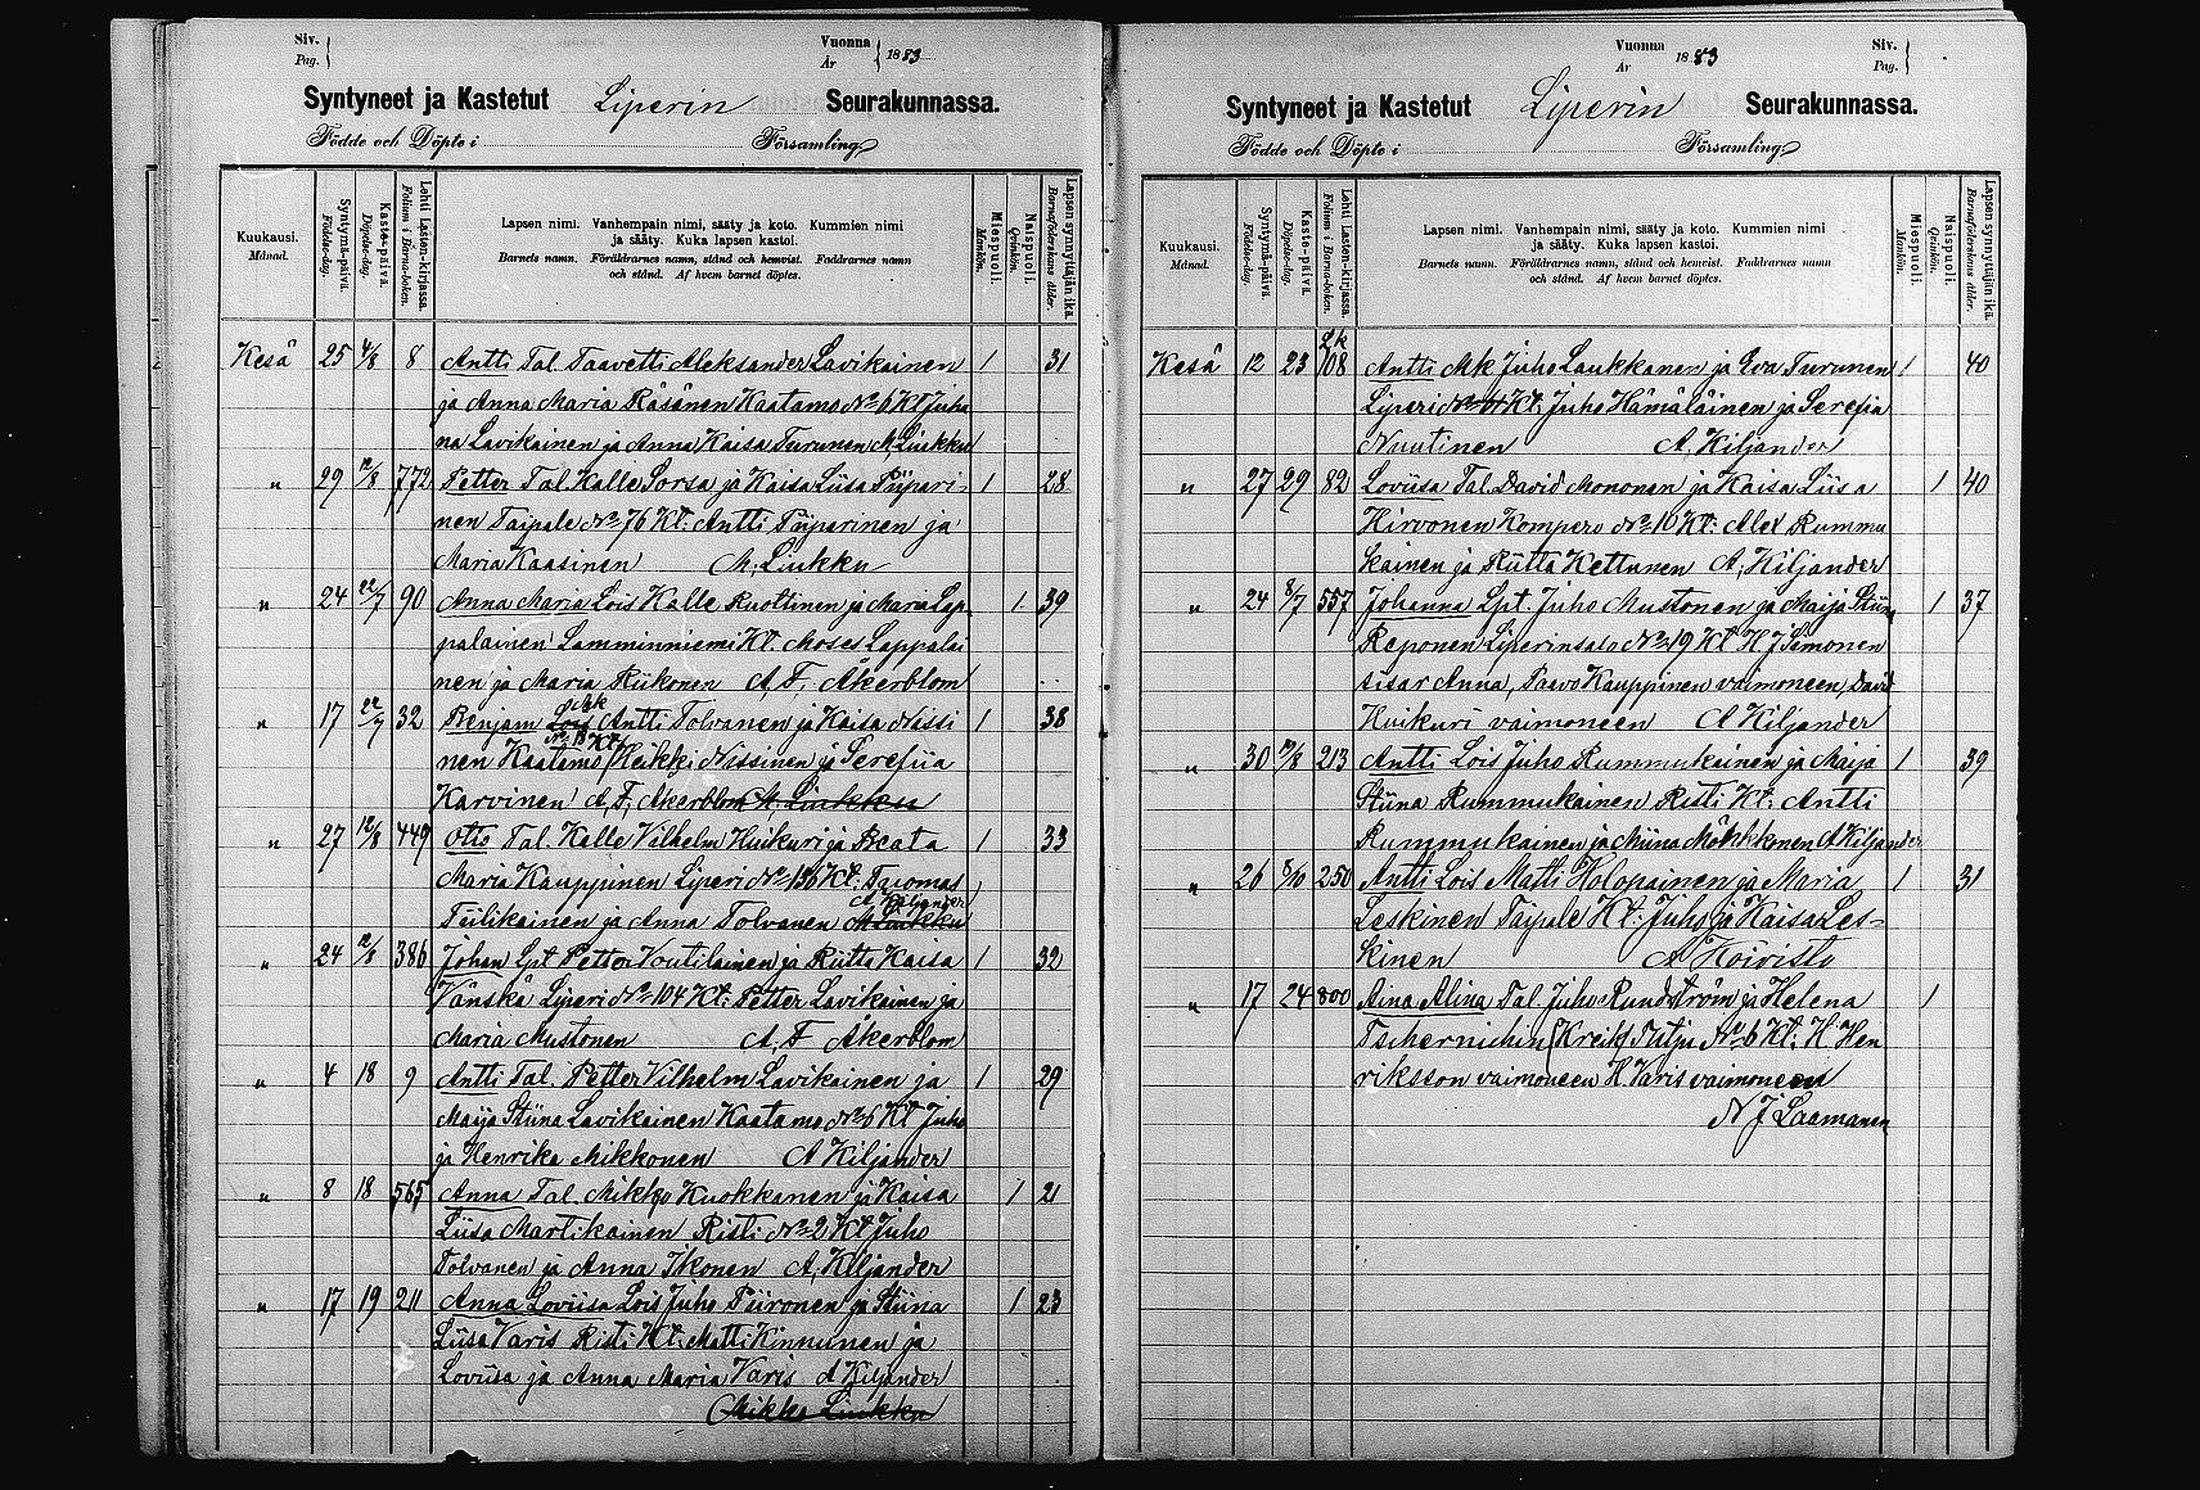 Siv.
Pag.
Vuonna
År
1883
Syntyneet ja Kastetut Liperin Seurakunnassa.
Födde och Döpte i Församling
Kuukausi.
Månad.
Syntymä-päivä.
Födelse-dag.
Kaste-päivä.
Döpelse-dag.
Lehti Lasten-kirjassa.
Folium i Barna-boken.
Lapsen nimi. Vanhempain nimi, sääty ja koto. Kummien nimi
ja sääty. Kuka lapsen kastoi.
Barnets namn. Föräldrarnes namn, stånd och hemvist. Faddrarnes namn
och stånd. Af hvem barnet döptes.
Miespuoli.
Mankön.
Naispuoli.
Qvinkön.
Lapsen synnyttäjän ikä.
Barnaföderskans ålder.
Kesä 25 4/8 8 Antti Tal. Taavetti Aleksander Lavikainen 1 31
ja Anna Maria Räsänen Kaatamo No 6 Kt Juha
na Lavikainen ja Anna Kaisa Turunen M. Liukku
" 29 12/8 772 Petter Tal. Kalle Sorsa ja Kaisa Liisa Piipari- 1 28
nen Taipale No 76 Kt: Antti Piiparinen ja
Maria Kaasinen M. Liukku
" 24 22/7 90 Anna Maria Lois Kalle Ruottinen ja Maria Lap- 1 39
palainen Lamminniemi Kt. Moses Lappalai
nen ja Maria Riikonen A. F. Åkerblom
" 17 22/7 32 Benjam Lois Mk Antti Tolvanen ja Kaisa Nissi 1 38
nen Kaatamo No 13 Kt. Heikki Nissinen ja Serefiia
Karvinen A. F. Åkerblom M. Liukku
" 27 12/8 449 Otto Tal. Kalle Vilhelm Huikuri ja Beata 1 33
Maria Kauppinen Liperi No 136 Kt: Tuomas
A Kiljander
Tiilikainen ja Anna Tolvanen M Liukku
" 24 12/8 386 Johan Lpt Petter Voutilainen ja Riitta Kaisa 1 32
Vänskä Liperi No 104 Kt: Petter Lavikainen ja
Maria Mustonen A. F Åkerblom
" 4 18 9 Antti Tal. Petter Vilhelm Lavikainen ja 1 29
Maija Stiina Lavikainen Kaatamo No 6 Kt Juho
ja Henrika Mikkonen A Kiljander
" 8 18 565 Anna Tal. Mikko Kuokkanen ja Kaisa 1 21
Liisa Martikainen Risti No 2 Kt Juho
Tolvanen ja Anna Ikonen A. Kiljander
" 17 19 211 Anna Loviisa Lois Juho Piironen ja Stiina 1 23
Liisa Varis Risti Kt: Matti Kinnunen ja
Loviisa ja Anna Maria Varis A Kiljander
Mikko Liukku
Vuonna
År
1883
Siv.
Pag.
Syntyneet ja Kastetut Liperin Seurakunnassa.
Födde och Döpte i Församling
Kuukausi.
Månad.
Syntymä-päivä.
Födelse-dag.
Kaste-päivä.
Döpelse-dag.
Lehti Lasten-kirjassa.
Folium i Barna-boken.
Lapsen nimi. Vanhempain nimi, sääty ja koto. Kummien nimi
ja sääty. Kuka lapsen kastoi.
Barnets namn. Föräldrarnes namn, stånd och hemvist. Faddrarnes namn
och stånd. Af hvem barnet döptes.
Miespuoli.
Mankön.
Naispuoli.
Qvinkön.
Lapsen synnyttäjän ikä.
Barnaföderskans ålder.
Lk
Kesä 12 23 108 Antti Mk Juho Laukkanen ja Eva Turunen 1 40
Liperi Kt: Juho Hämäläinen ja Serefia
Nuutinen A. Kiljander
" 27 29 82 Loviisa Tal. David Mononen ja Kaisa Liisa 1 40
Hirvonen Kompero No 10 Kt: Alex Rummu
kainen ja Riitta Kettunen A. Kiljander
" 24 8/7 557 Johanna Lpt. Juho Mustonen ja Maija Stiina 1 37
Reponen Liperinsalo No 19 Kt H. J Simonen
sisar Anna, Paavo Kauppinen vaimoneen, David
Huikuri vaimoneen A Kiljander
" 30 12/8 213 Antti Lois Juho Rummukainen ja Maija 1 39
Stiina Rummukainen Risti Kt: Antti
Rummukainen ja Miina Möhkkönen A Kiljander
" 26 8/10 250 Antti Lois Matti Holopainen ja Maria 1 31
Leskinen Taipale Kt: Juho ja Kaisa Les-
kinen A Koivisto
" 17 24 800 Aina Alina Tal. Juho Rundström ja Helena 1
Tschernichin (Kreik) Tutju No 6 Kt: H Hen
riksson vaimoneen H Varis vaimoneen
N J Laamanen